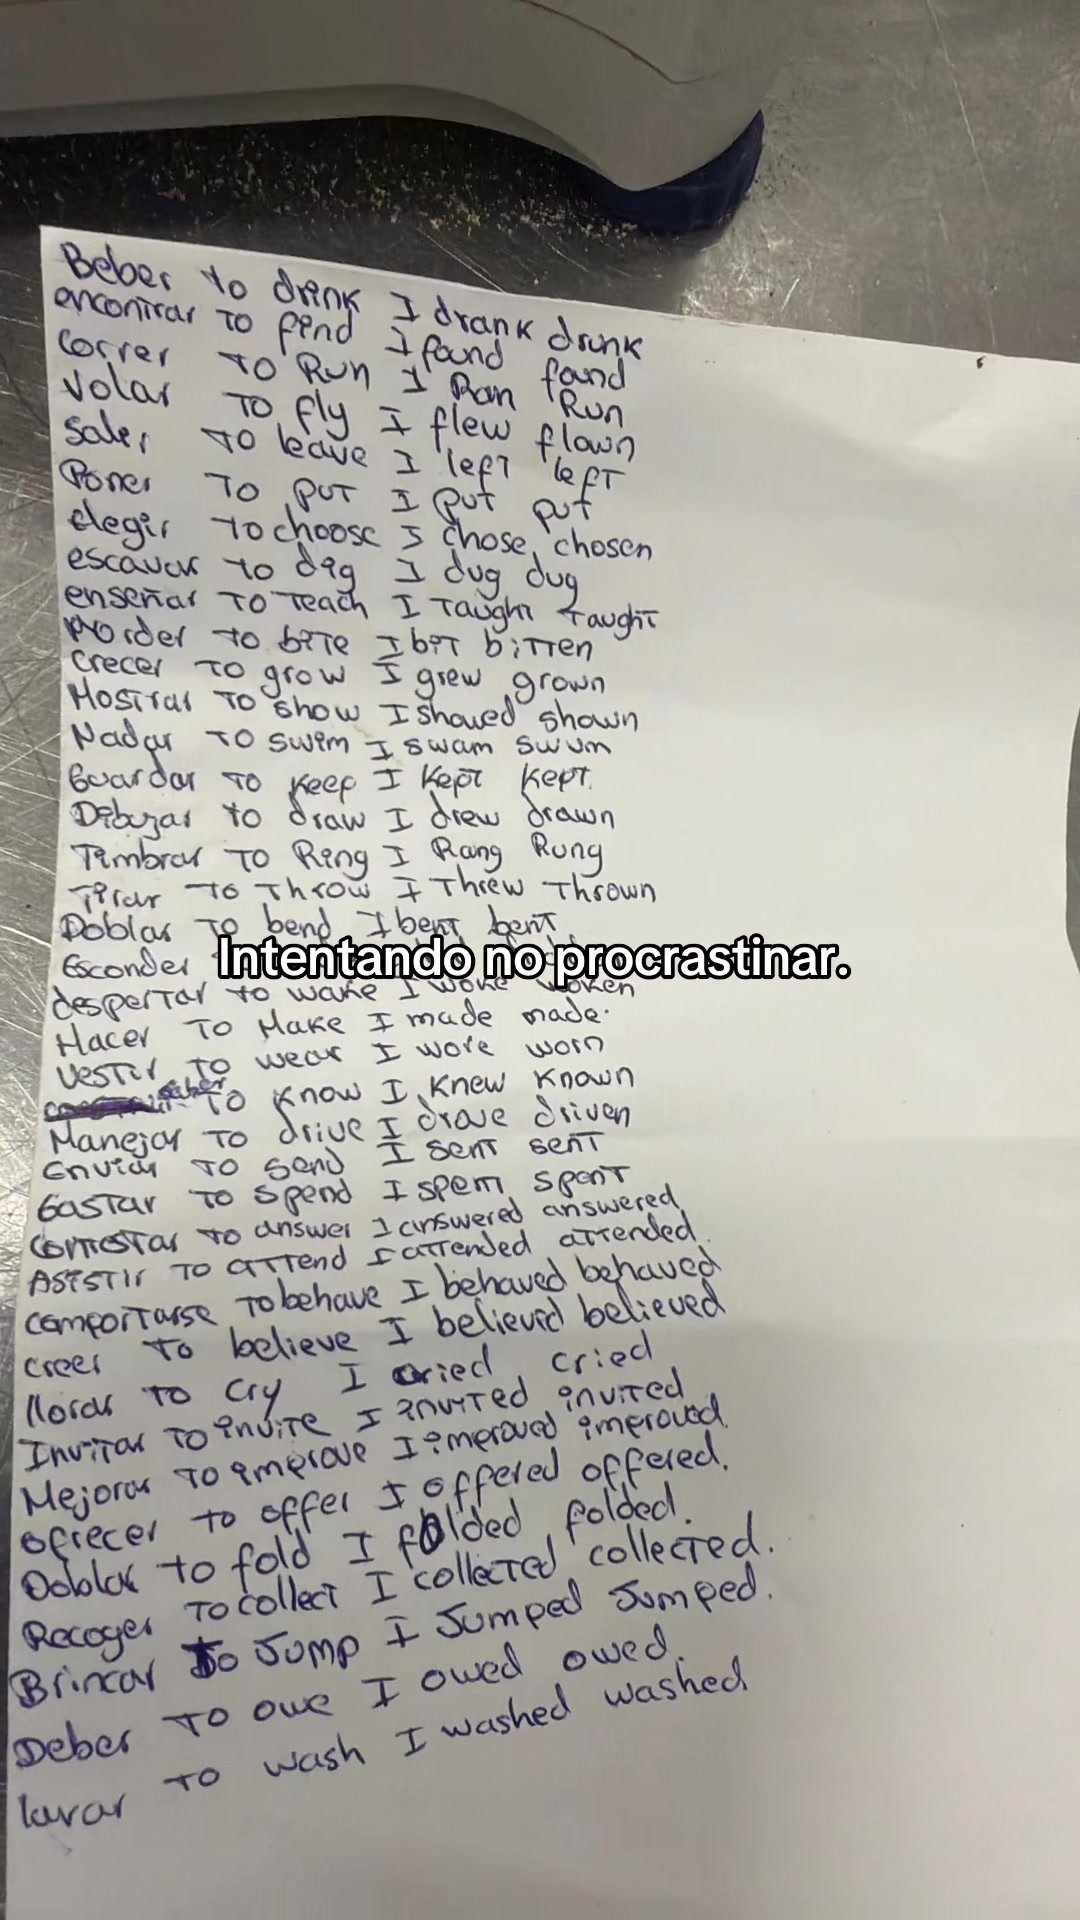 Beber to drink I drank drunk
encontrar To find I found found
Correr To Run I Ran Run
Volar To fly I flew flown
Saler To leave I left left
Poner To put I put put
elegir To choose I chose chosen
escavar to dig I dug dug
enseñar To Teach I Taught Taught
Morder to bite I bit bitten
Crecer To grow I grew grown
Mostrar To show I showed shown
Nadar To swim I swam swum
Guardar To keep I kept kept.
Dibujar to draw I drew drawn
Timbrar To Ring I Rang Rung
Tirar To Throw I Threw Thrown
Doblar To bend I bent bent
Esconder
Intentando no procrastinar.
despertar to wake I woke woken
Hacer To Make I made made.
Vestir To wear I wore worn
saber To know I knew known
Manejar To drive I drove driven
Enviar To send I sent sent
Gastar To spend I spent spent
Contestar To answer I answered answered
Asistir To attend I attended attended.
Comportarse To behave I behaved behaved
Creer To believe I believed believed
llorar To Cry I cried cried
Invitar To invite I invited invited
Mejorar To improve I improved improved.
Ofrecer to offer I offered offered.
Doblar to fold I folded folded.
Recoger To collect I collected collected.
Brincar To Jump I Jumped Jumped.
Deber To owe I owed owed.
lavar To wash I washed washed